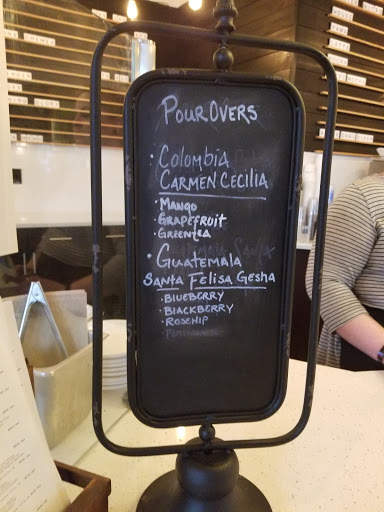 POUR OVERS
· COLOMBIA
CARMEN CECILIA
· MANGO
· GRAPEFRUIT
· GREENTEA
· GUATEMALA
SANTA FELISA GESHA
· BLUEBERRY
· BLACKBERRY
· ROSEHIP